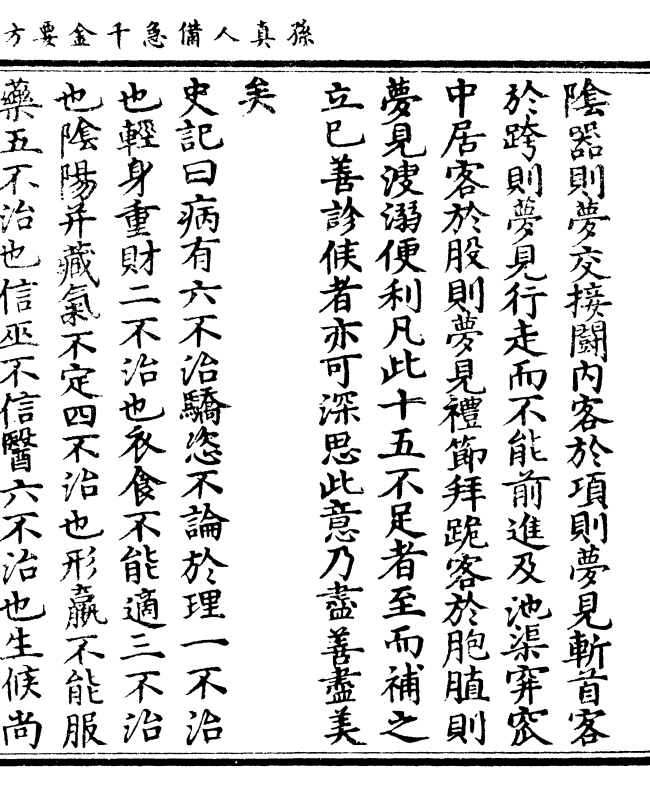 孫真人備急千金要方
陰器則夢交接鬪內客於項則夢見斬首客
於跨則夢見行走而不能前進及池渠穽窌
中居客於股則夢見禮節拜跪客於胞䐈則
夢見溲溺便利凡此十五不足者至而補之
立已善診候者亦可深思此意乃盡善盡美
矣
史記曰病有六不治驕恣不論於理一不治
也輕身重財二不治也衣食不能適三不治
也陰陽并藏氣不定四不治也形羸不能服
藥五不治也信巫不信醫六不治也生候尚